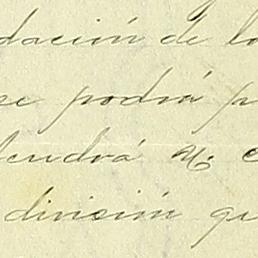 dación de la
se podrá p
tendrá
división qu